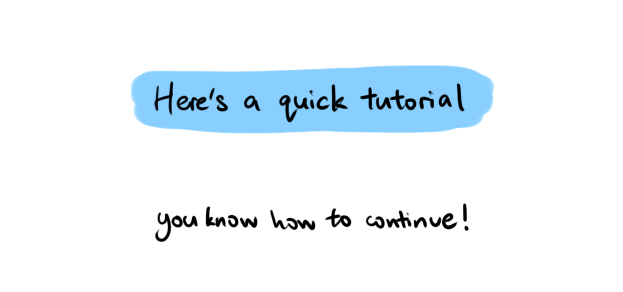 Here's a quick tutorial
you know how to continue!